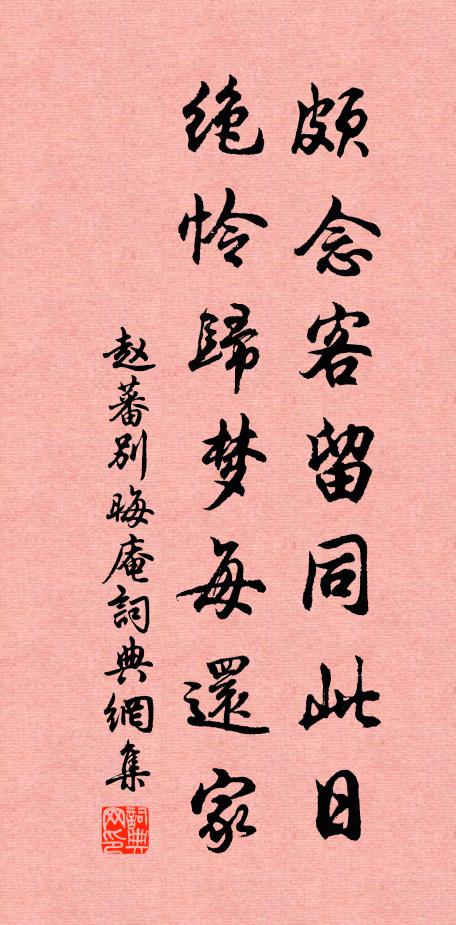 颇念客留同此日
绝怜归梦每还家
赵蕃别晦庵詞典網集
詞典网印